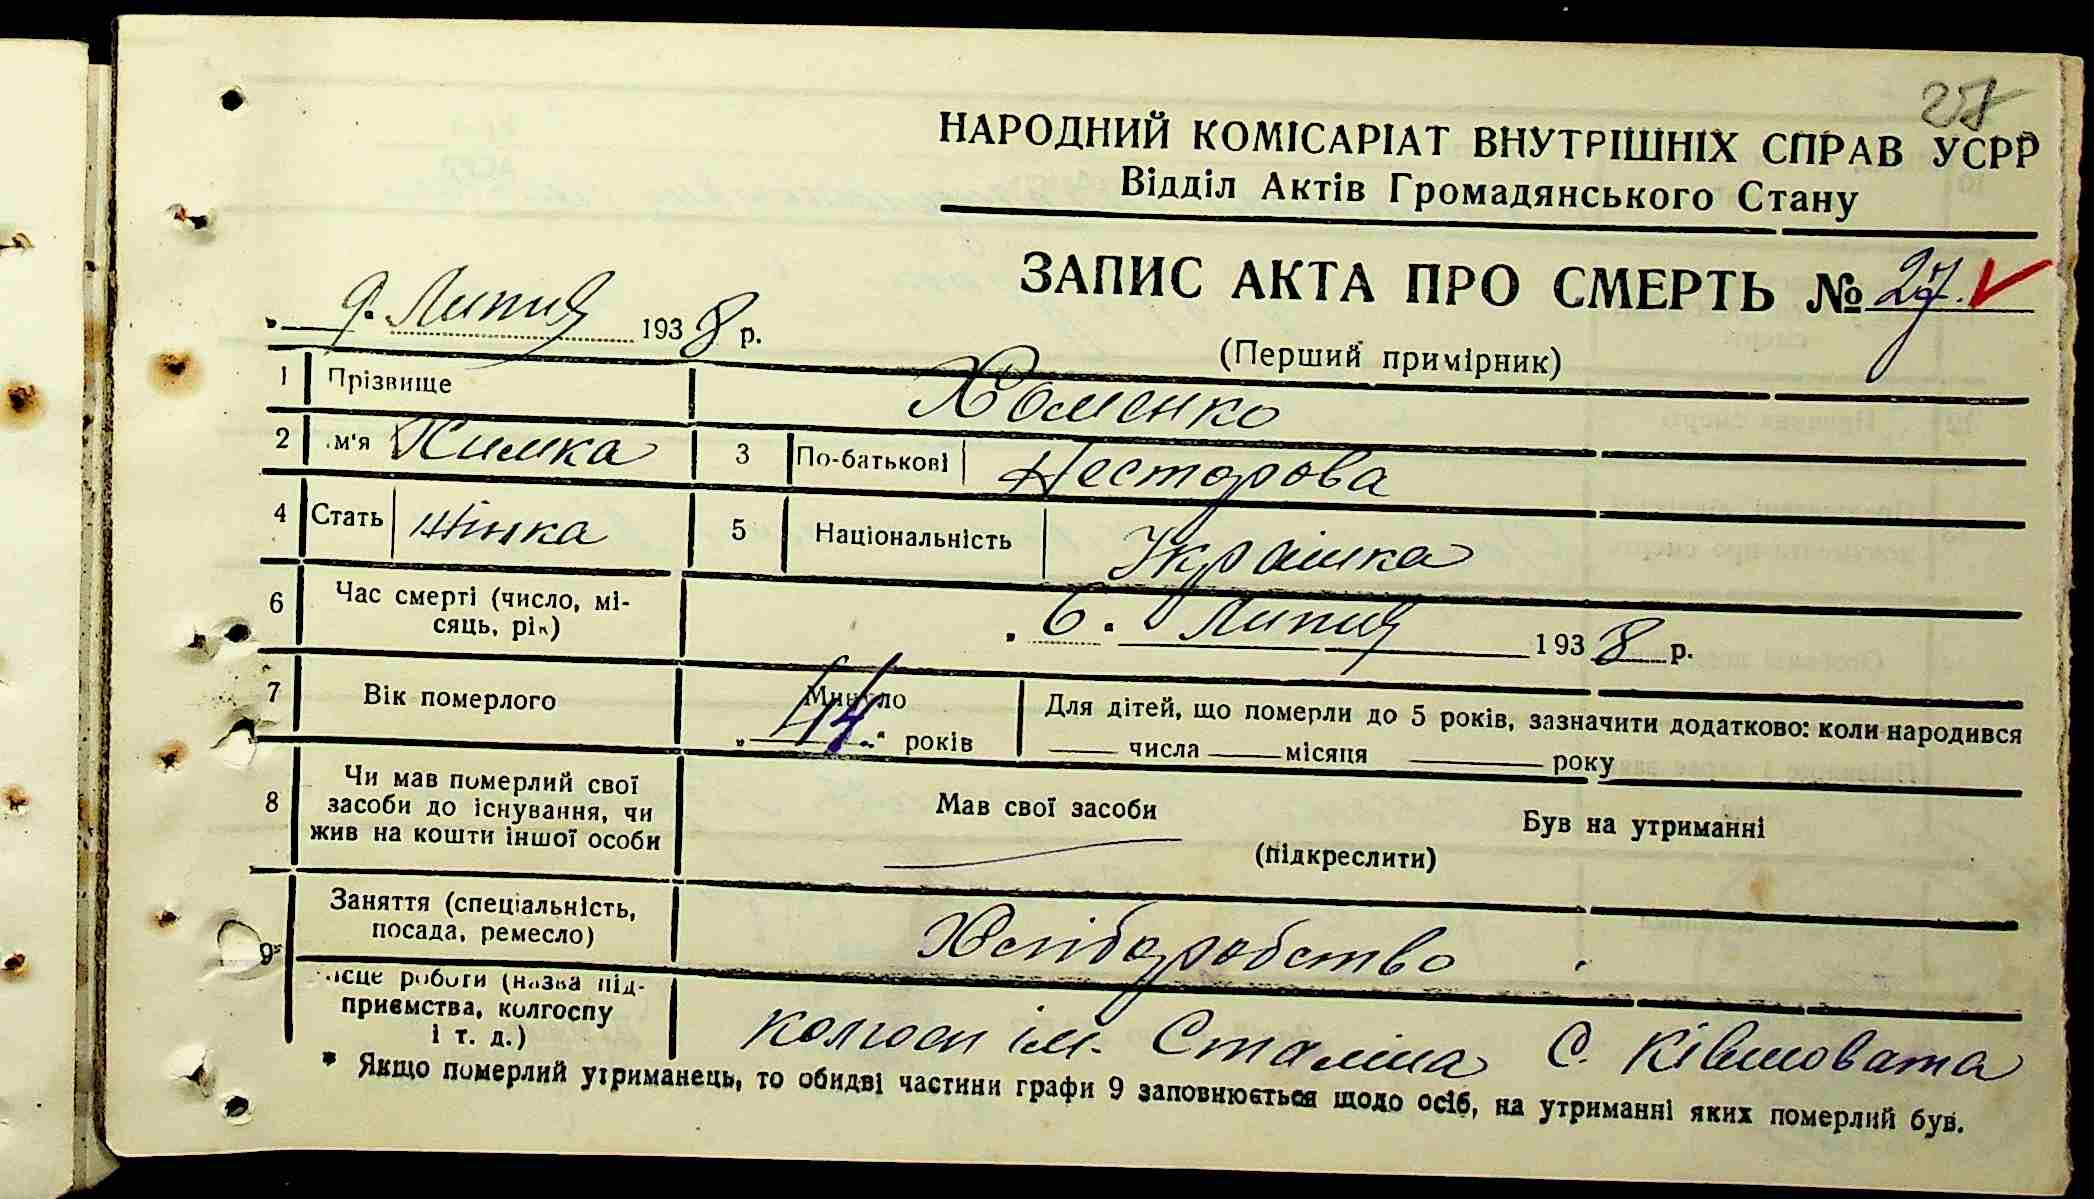 27
НАРОДНИЙ КОМІСАРІАТ ВНУТРІШНІХ СПРАВ УСРР
Відділ Актів Громадянського Стану
ЗАПИС АКТА ПРО СМЕРТЬ № 27.
„ 9. Липня 1938 р.
(Перший примірник)
1 Прізвище Хоменко
2 м'я Химка 3 По-батькові Несторова
4 Стать жінка 5 Національність Українка
6 Час смерті (число, мі-
сяць, рік) „ 6 " Липня 1938 р.
7 Вік померлого Минуло „ 44 " років
Для дітей, що померли до 5 років, зазначити додатково: коли народився
числа місяця року
8 Чи мав померлий свої
засоби до існування, чи
жив на кошти іншої особи
Мав свої засоби Був на утриманні
(підкреслити)
9* Заняття (спеціальність,
посада, ремесло) Хліборобство
ісце роботи (назва під-
приємства, колгоспу
і т. д.) колгосп ім. Сталіна С. Ківшовата
* Якщо померлий утриманець, то обидві частини графи 9 заповнюється щодо осіб, на утриманні яких померлий був.